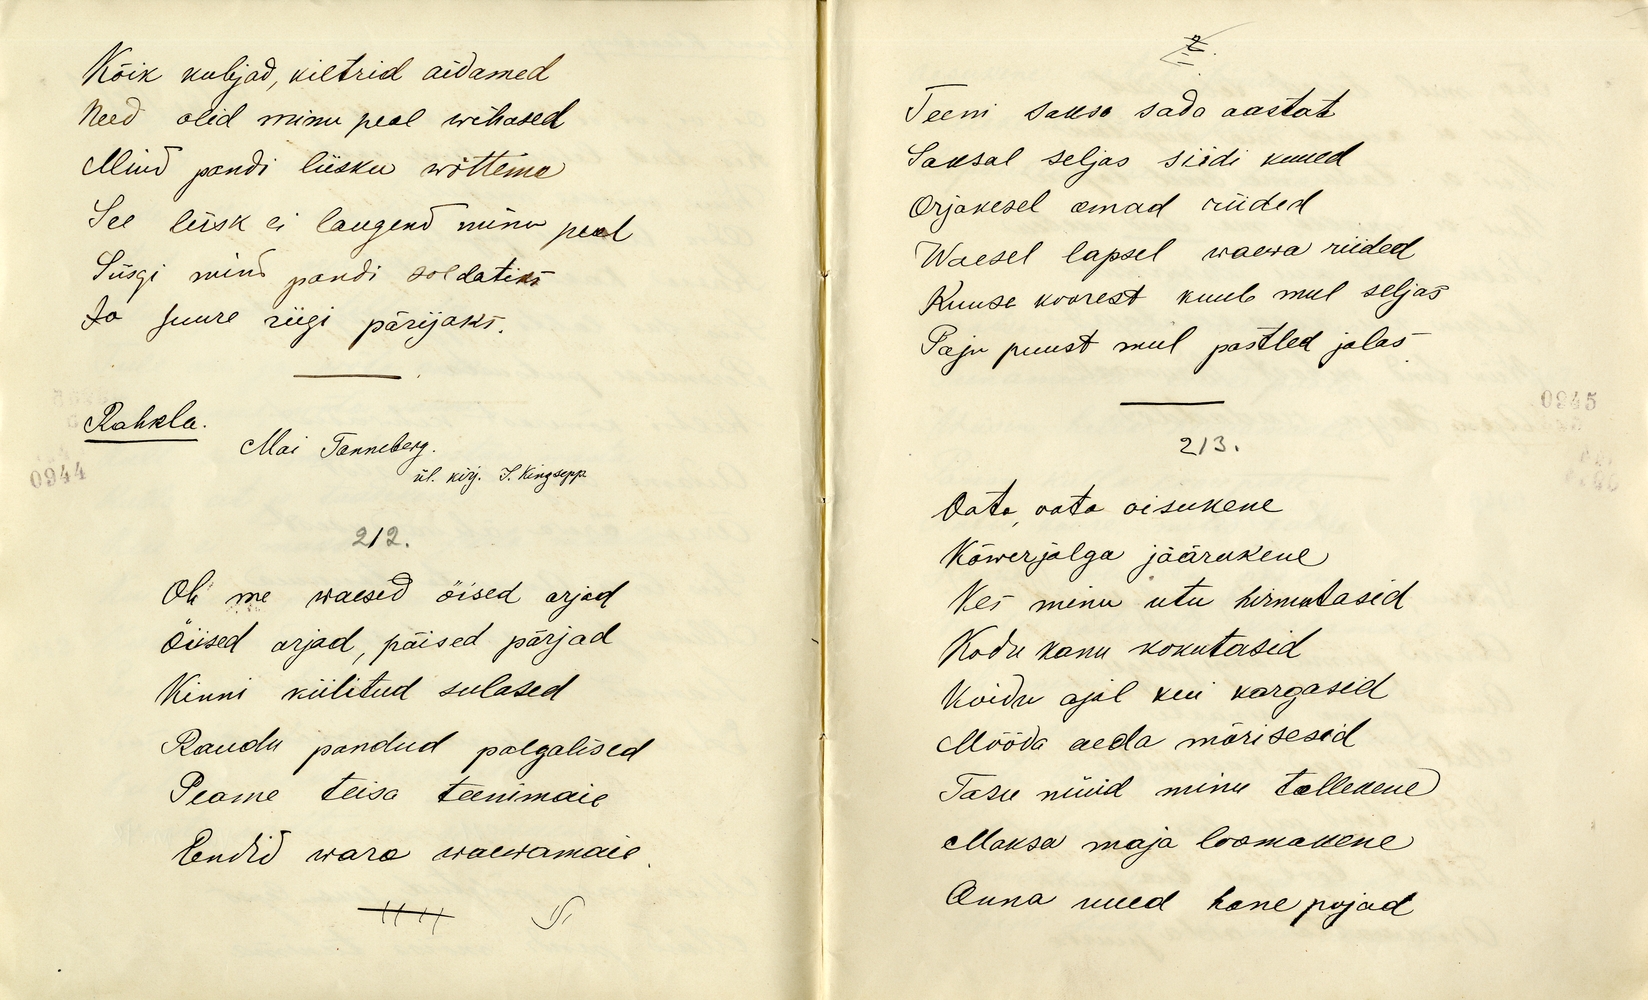 Kõik kubjad, kiltrid aidamed
Need olid minu peal wihased
Mind pandi liisku wõttema
See liisk ei langend minu peal
Siisgi mind pandi soldatiks
Ja suure riigi pärijaks.
Rahkla.
Mai Tanneberg.
0944
ül. kirj. J. Kingsepp
212.
Oh me waesed öised orjad
Öised orjad, päised pärjad
Kinni kiilitud sulased
Raudu pandud palgalised
Peame teisa teenimaie
Endid wara waewamaie.
Teeni saksa sada aastat
Saksal seljas siidi kuued
Orjakesel omad riided
Waesel lapsel waewa riided
Kuuse koorest kuub mul seljas
Paju puust mul pastled jalas
0945
213.
Oota, oota oisukene
Kõwerjalga jäärukene
Kes minu utu hirmutasid
Kodu kanu kokutasid
Koidu ajal kui kargasid
Mööda aeda märisesid
Tasu nüüd minu tallekene
Maksa maja loomakene
Anna uued hane pojad